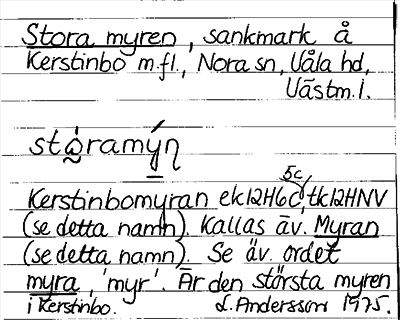 Stora myren, sankmark å
Kerstinbo m.fl., Nora sn, Våla hd,
Västm.l.
stòramýŋ
Kerstinbomyran ek12H6c, tk12HNV
5c
(se detta namn). Kallas äv. Myran
(se detta namn). Se äv. ordet
myra, 'myr'. Är den största myren
i Kerstinbo. L. Andersson 1975.